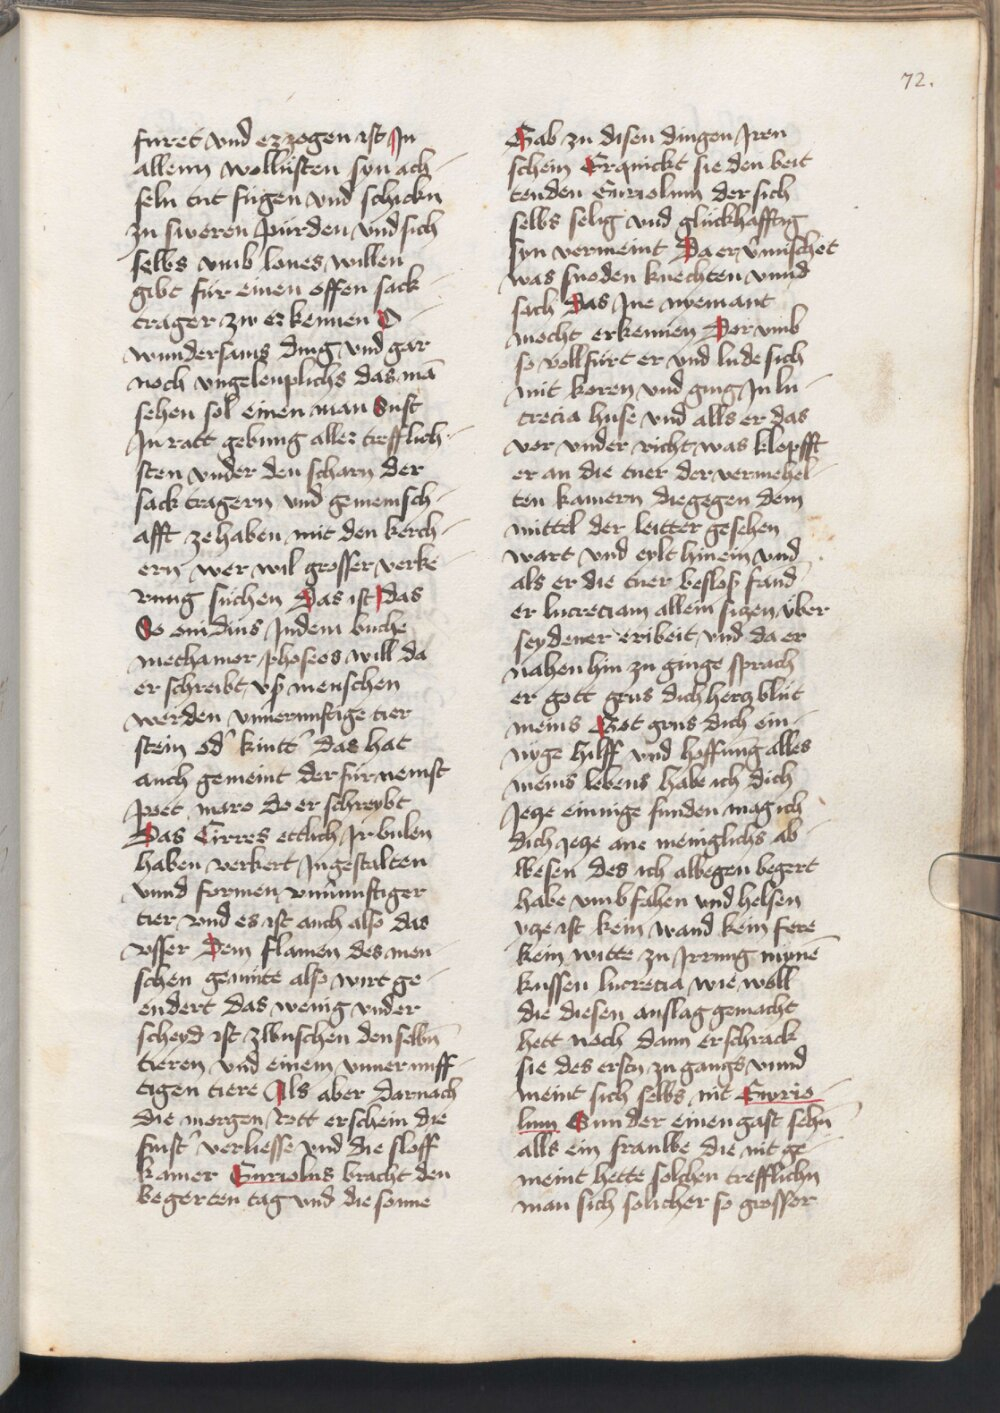 72.
furet vnd erzogen ist In
allenn wollüsten syn ach-
seln tut fügen vnd schickn
zu sweren pürden vnd sich
selbs vmb lones willen
gibt für einen offen sack-
trager zw erkennen O
wundersams ding vnd gar
noch vngeleuplichs das mā
sehen sol einen man Sust
In ratt gebung aller trefflich-
sten vnder den scharn der
sack tragern vnd gemeinsch-
afft ze haben mit den kerch-
ern wer wil grosser verke-
rung suchen Das ist das
So ouidius Indem buche
methamorphoseos will da
er schreibt vß menschen
werden vnnernunftige tier
stein od' kintt' das hat
auch gemeint der fürnemst
poet maro do er schreybt
Das Cirres ettlich Ir bulen
haben verkert In gestalten
vnnd formen vnūnunftiger
tier vnd es ist auch also das
vsser Dem flamen des men-
schen gemüte also wirt ge-
endert das wenig vnder
scheyd ist zwuschen denselbn
tieren vnd einem vnnernuff-
tigen tiere Als aber darnach
die morgen Rott erschein die
finst' verliesse vnd die sloff
kamer Euriolus bracht den
begerten tag vnd die sonne
Gab zu disen dingen Iren
schein Erquickt sie den beit-
tenden Euriolum der sich
selbs selig vnd glückhafftig
syn vermeint Da er v̄muschet
was snoden knechten vnnd
sach Das Ine nyemant
mocht erkennen Dor vmb
so vollfürt er vnd lude sich
mit koren vnd ging In lu-
crecia huse vnd alls er das
vor vnder richt was klopfft
er an die tuer der vermehel-
ten kamern die gegen dem
mittel der leitter gesehen
wart vnd eylt hinein vnd
als er die tuer besloß fand
er lucreciam allein siczen über
seydener eribeit vnd da er
nahen hin zu ginge sprach
er gott grus dich hercz blüt
meins Got grus dich ein-
nige hilff vnd hoffung alles
meins lebens habe ich dich
Jecze einnige funden mag ich
dich Jecze ane meniglichs ab-
wesen des ich alwegen begert
habe vmbfahen vnd helsen
ycze ist kein wand kein fere
kein witte zu Irrung mynē
kussen lucrecia wie woll
die diesen anslag gemacht
hett noch dann erschrack
sie des erstn zu gangs vnnd
meint sich selbs nit Eurio-
lum Sunder einen gast sehn
alls ein frauwe die nit ge-
meint hette solchen trefflichn
man sich solicher so grosser